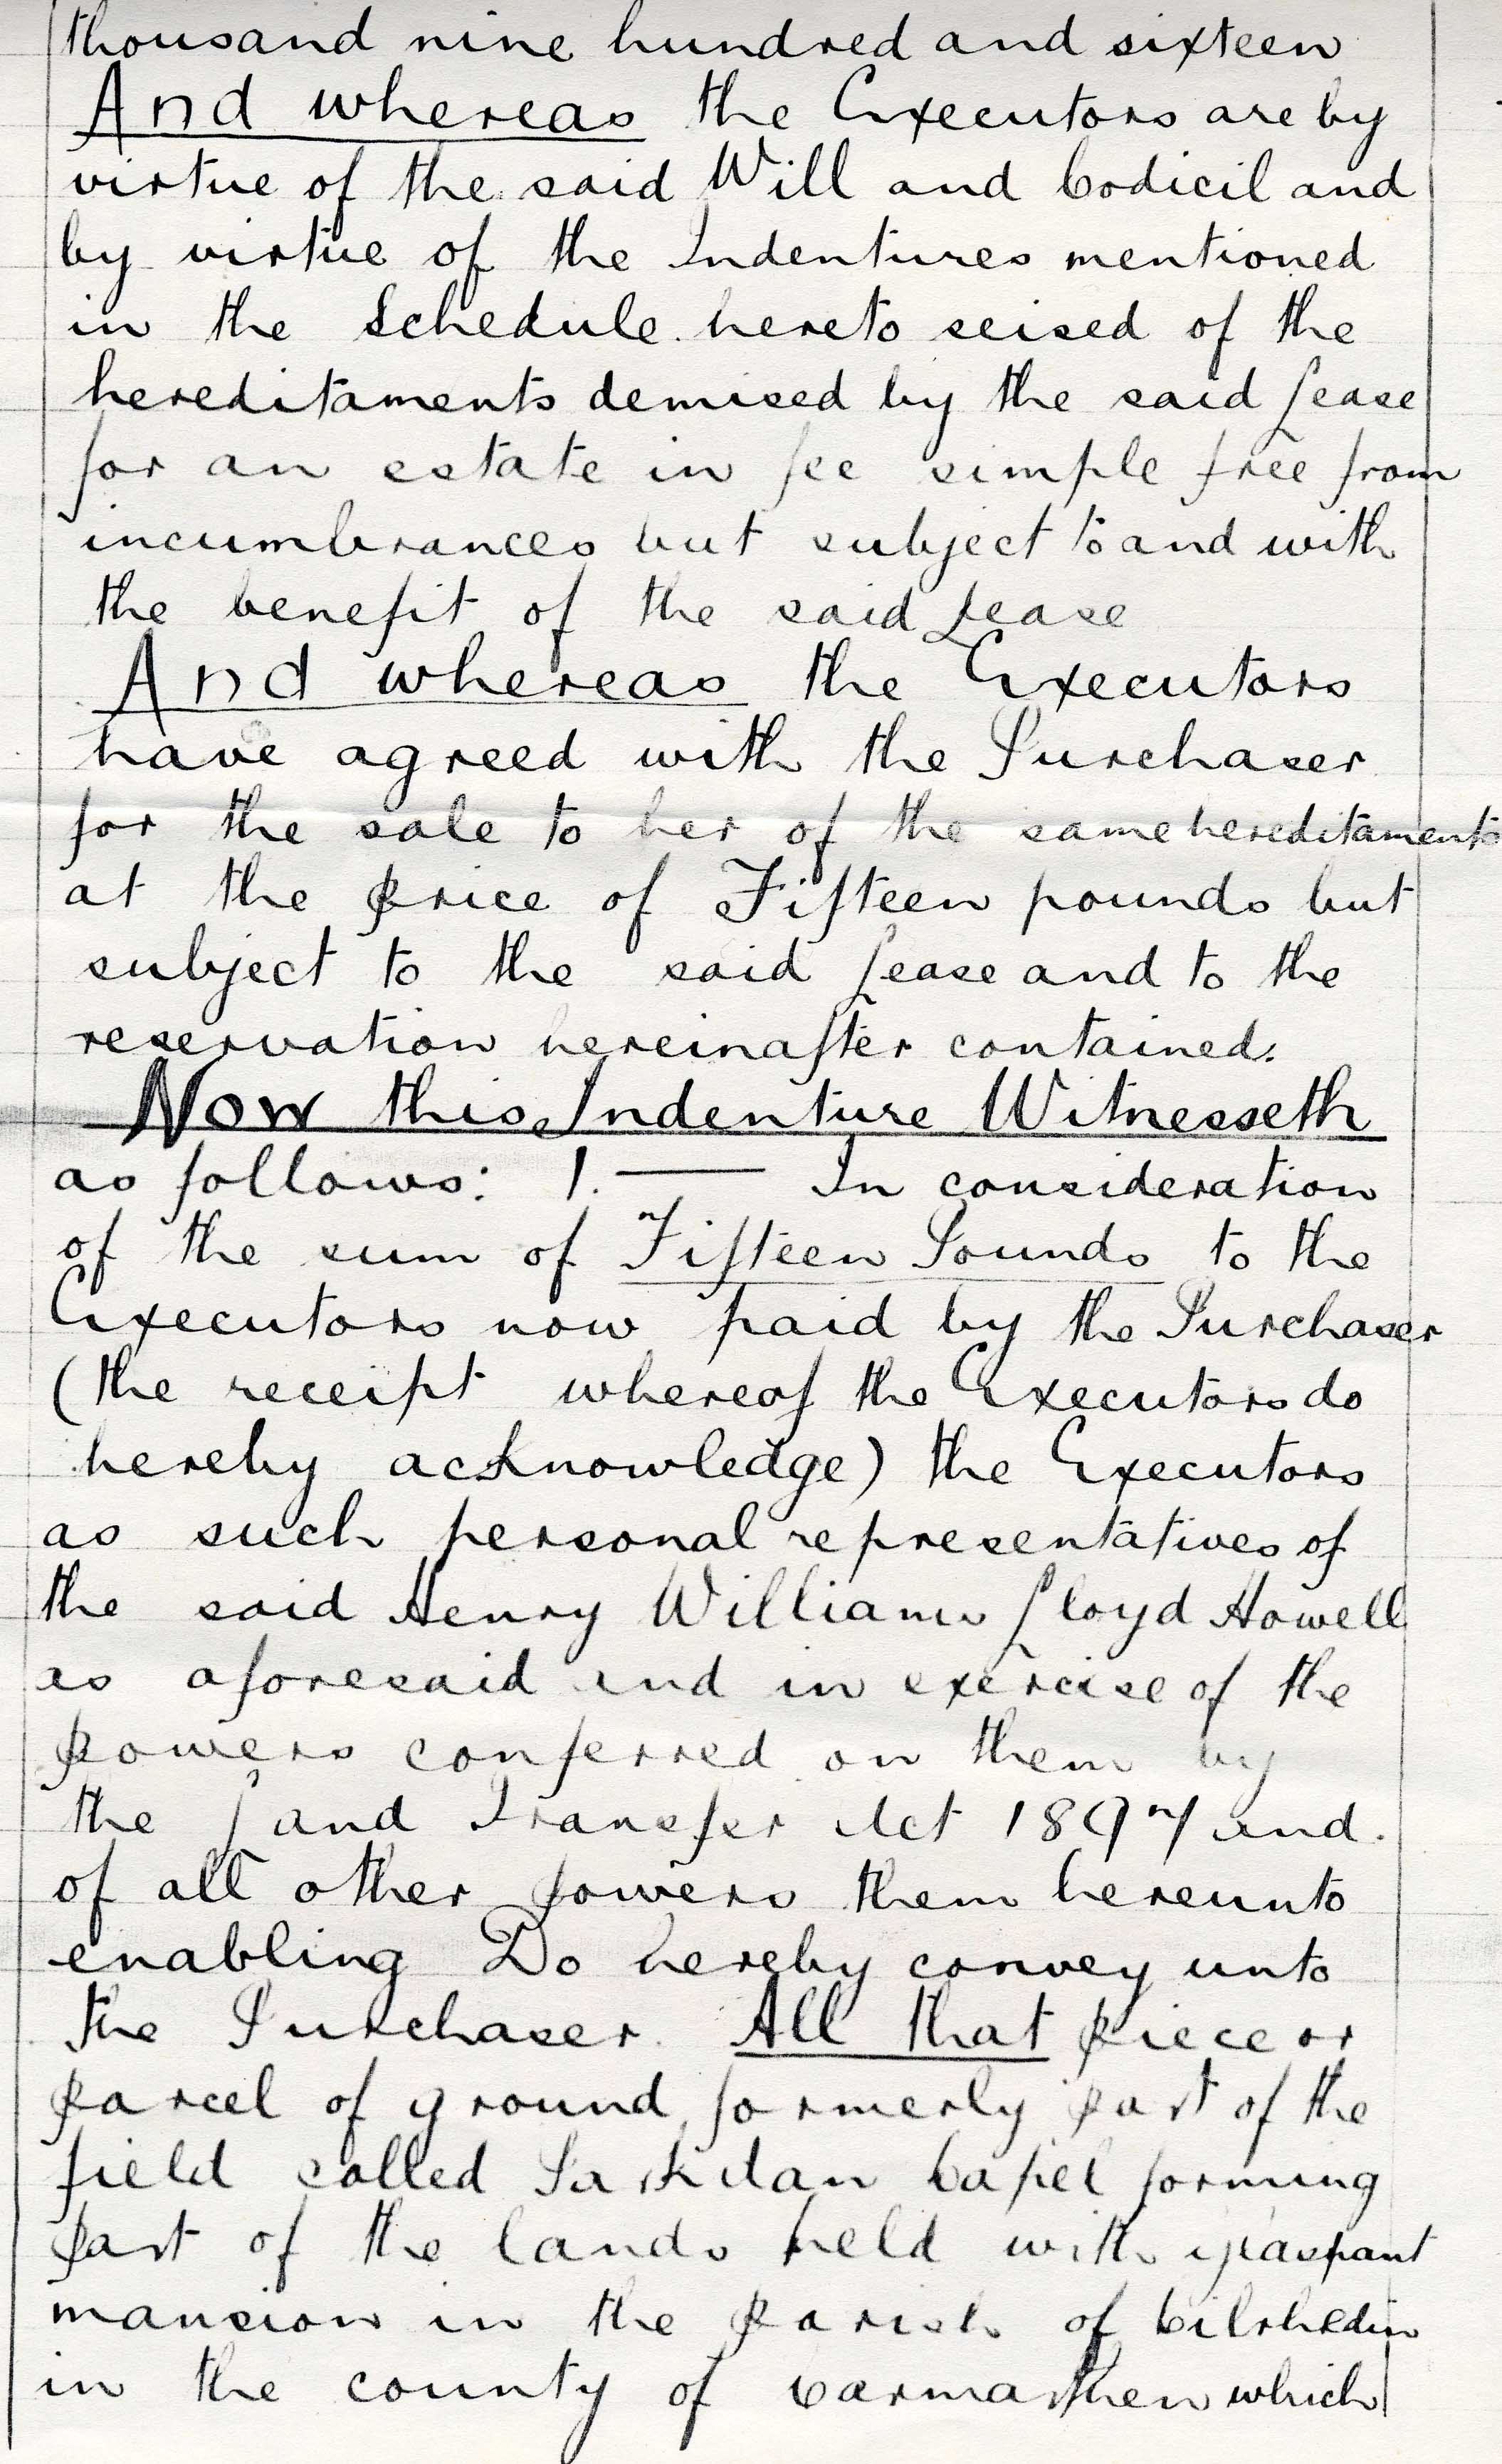 thousand nine hundred and sixteen
And whereas the Executors are by
virtue of the said Will and Codicil and
by virtue of the Indentures mentioned
in the Schedule hereto seised of the
hereditaments demised by the said Lease
for an estate in fee simple free from
incumbrances but subject to and with
the benefit of the said Lease
And whereas the Executors
have agreed with the Purchaser
for the sale to her of the same hereditaments
at the Price of Fifteen pounds but
subject to the said Lease and to the
reservation hereinafter contained.
Now this Indenture Witnesseth
as follows: 1. —— In consideration
of the sum of Fifteen Pounds to the
Executors now paid by the Purchaser
(the receipt whereof the Executors do
hereby acknowledge) the Executors
as such personal representatives of
the said Henry William Lloyd Howell
as aforesaid and in exercise of the
Powers conferred on them by
the Land Transfer Act 1897 and.
of all other Powers them hereunto
enabling Do hereby convey unto
the Purchaser. All that Piece or
Parcel of ground formerly Part of the
field called Parkdan Capel forming
Part of the lands held with Glaspant
mansion in the Parish of Cilrhedin
in the county of Carmarthen which